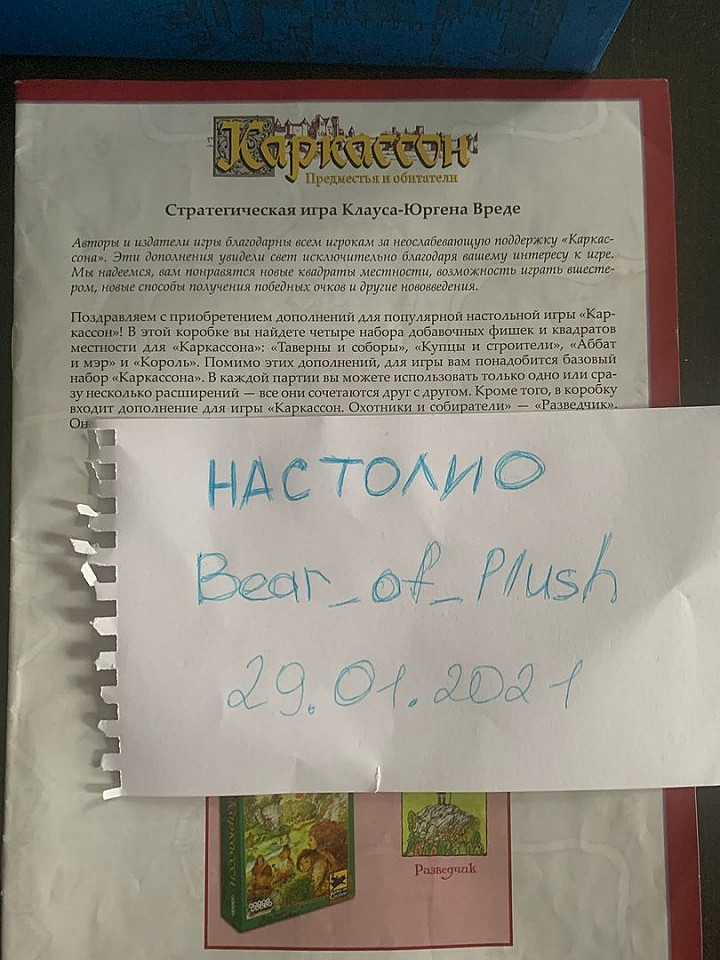 Каркассон
Предместья и обитатели
Стратегическая игра Клауса-Юргена Вреде
Авторы и издатели игры благодарны всем игрокам за неослабевающую поддержку «Каркас-
сона». Эти дополнения увидели свет исключительно благодаря вашему интересу к игре.
Мы надеемся, вам понравятся новые квадраты местности, возможность играть вшесте-
ром, новые способы получения победных очков и другие нововведения.
Поздравляем с приобретением дополнений для популярной настольной игры «Кар-
кассон»! В этой коробке вы найдете четыре набора добавочных фишек и квадратов
местности для «Каркассона»: «Таверны и соборы», «Купцы и строители», «Аббат
и мэр» и «Король». Помимо этих дополнений, для игры вам понадобится базовый
набор «Каркассона». В каждой партии вы можете использовать только одно или сра-
зу несколько расширений — все они сочетаются друг с другом. Кроме того, в коробку
входит дополнение для игры «Каркассон. Охотники и собиратели» — «Разведчик».
Он
НАСТОЛИО
Bear_of_Plush
29.01.2021
Разведчик